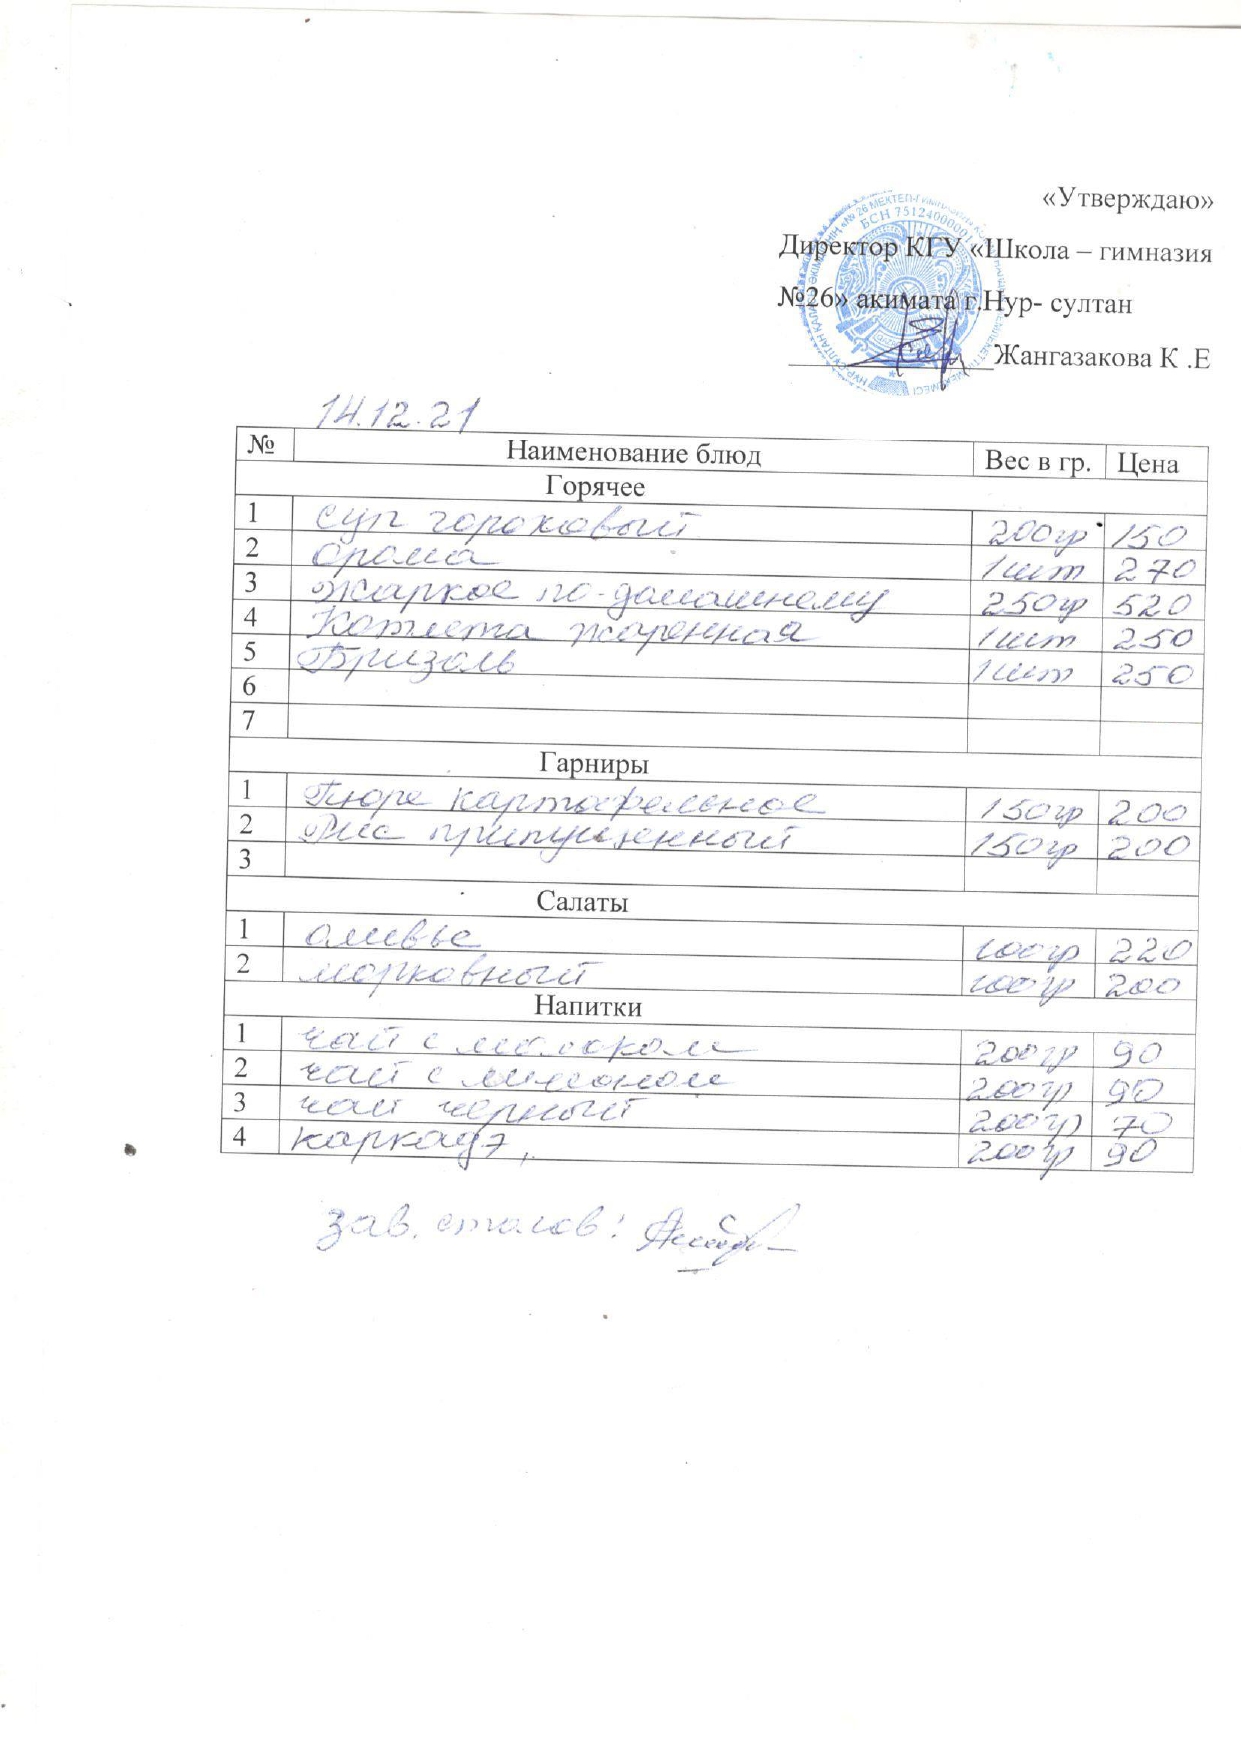 «Утверждаю»
Директор КГУ «Школа – гимназия
№26» акимата г.Нур- султан
Жангазакова К .Е
14.12.21
№ Наименование блюд Вес в гр. Цена
Горячее
1 суп гороховый 200гр 150
2 орама 1шт 270
3 Жаркое по-домашнему 250гр 520
4 Котлета жаренная 1шт 250
5 Бризоль 1шт 250
6
7
Гарниры
1 Пюре картофельное 150гр 200
2 Рис припущенный 150гр 200
3
Салаты
1 оливье 100гр 220
2 морковный 100гр 200
Напитки
1 чай с молоком 200гр 90
2 чай с лимоном 200гр 90
3 чай черный 200гр 70
4 каркадэ 200гр 90
зав. столов: